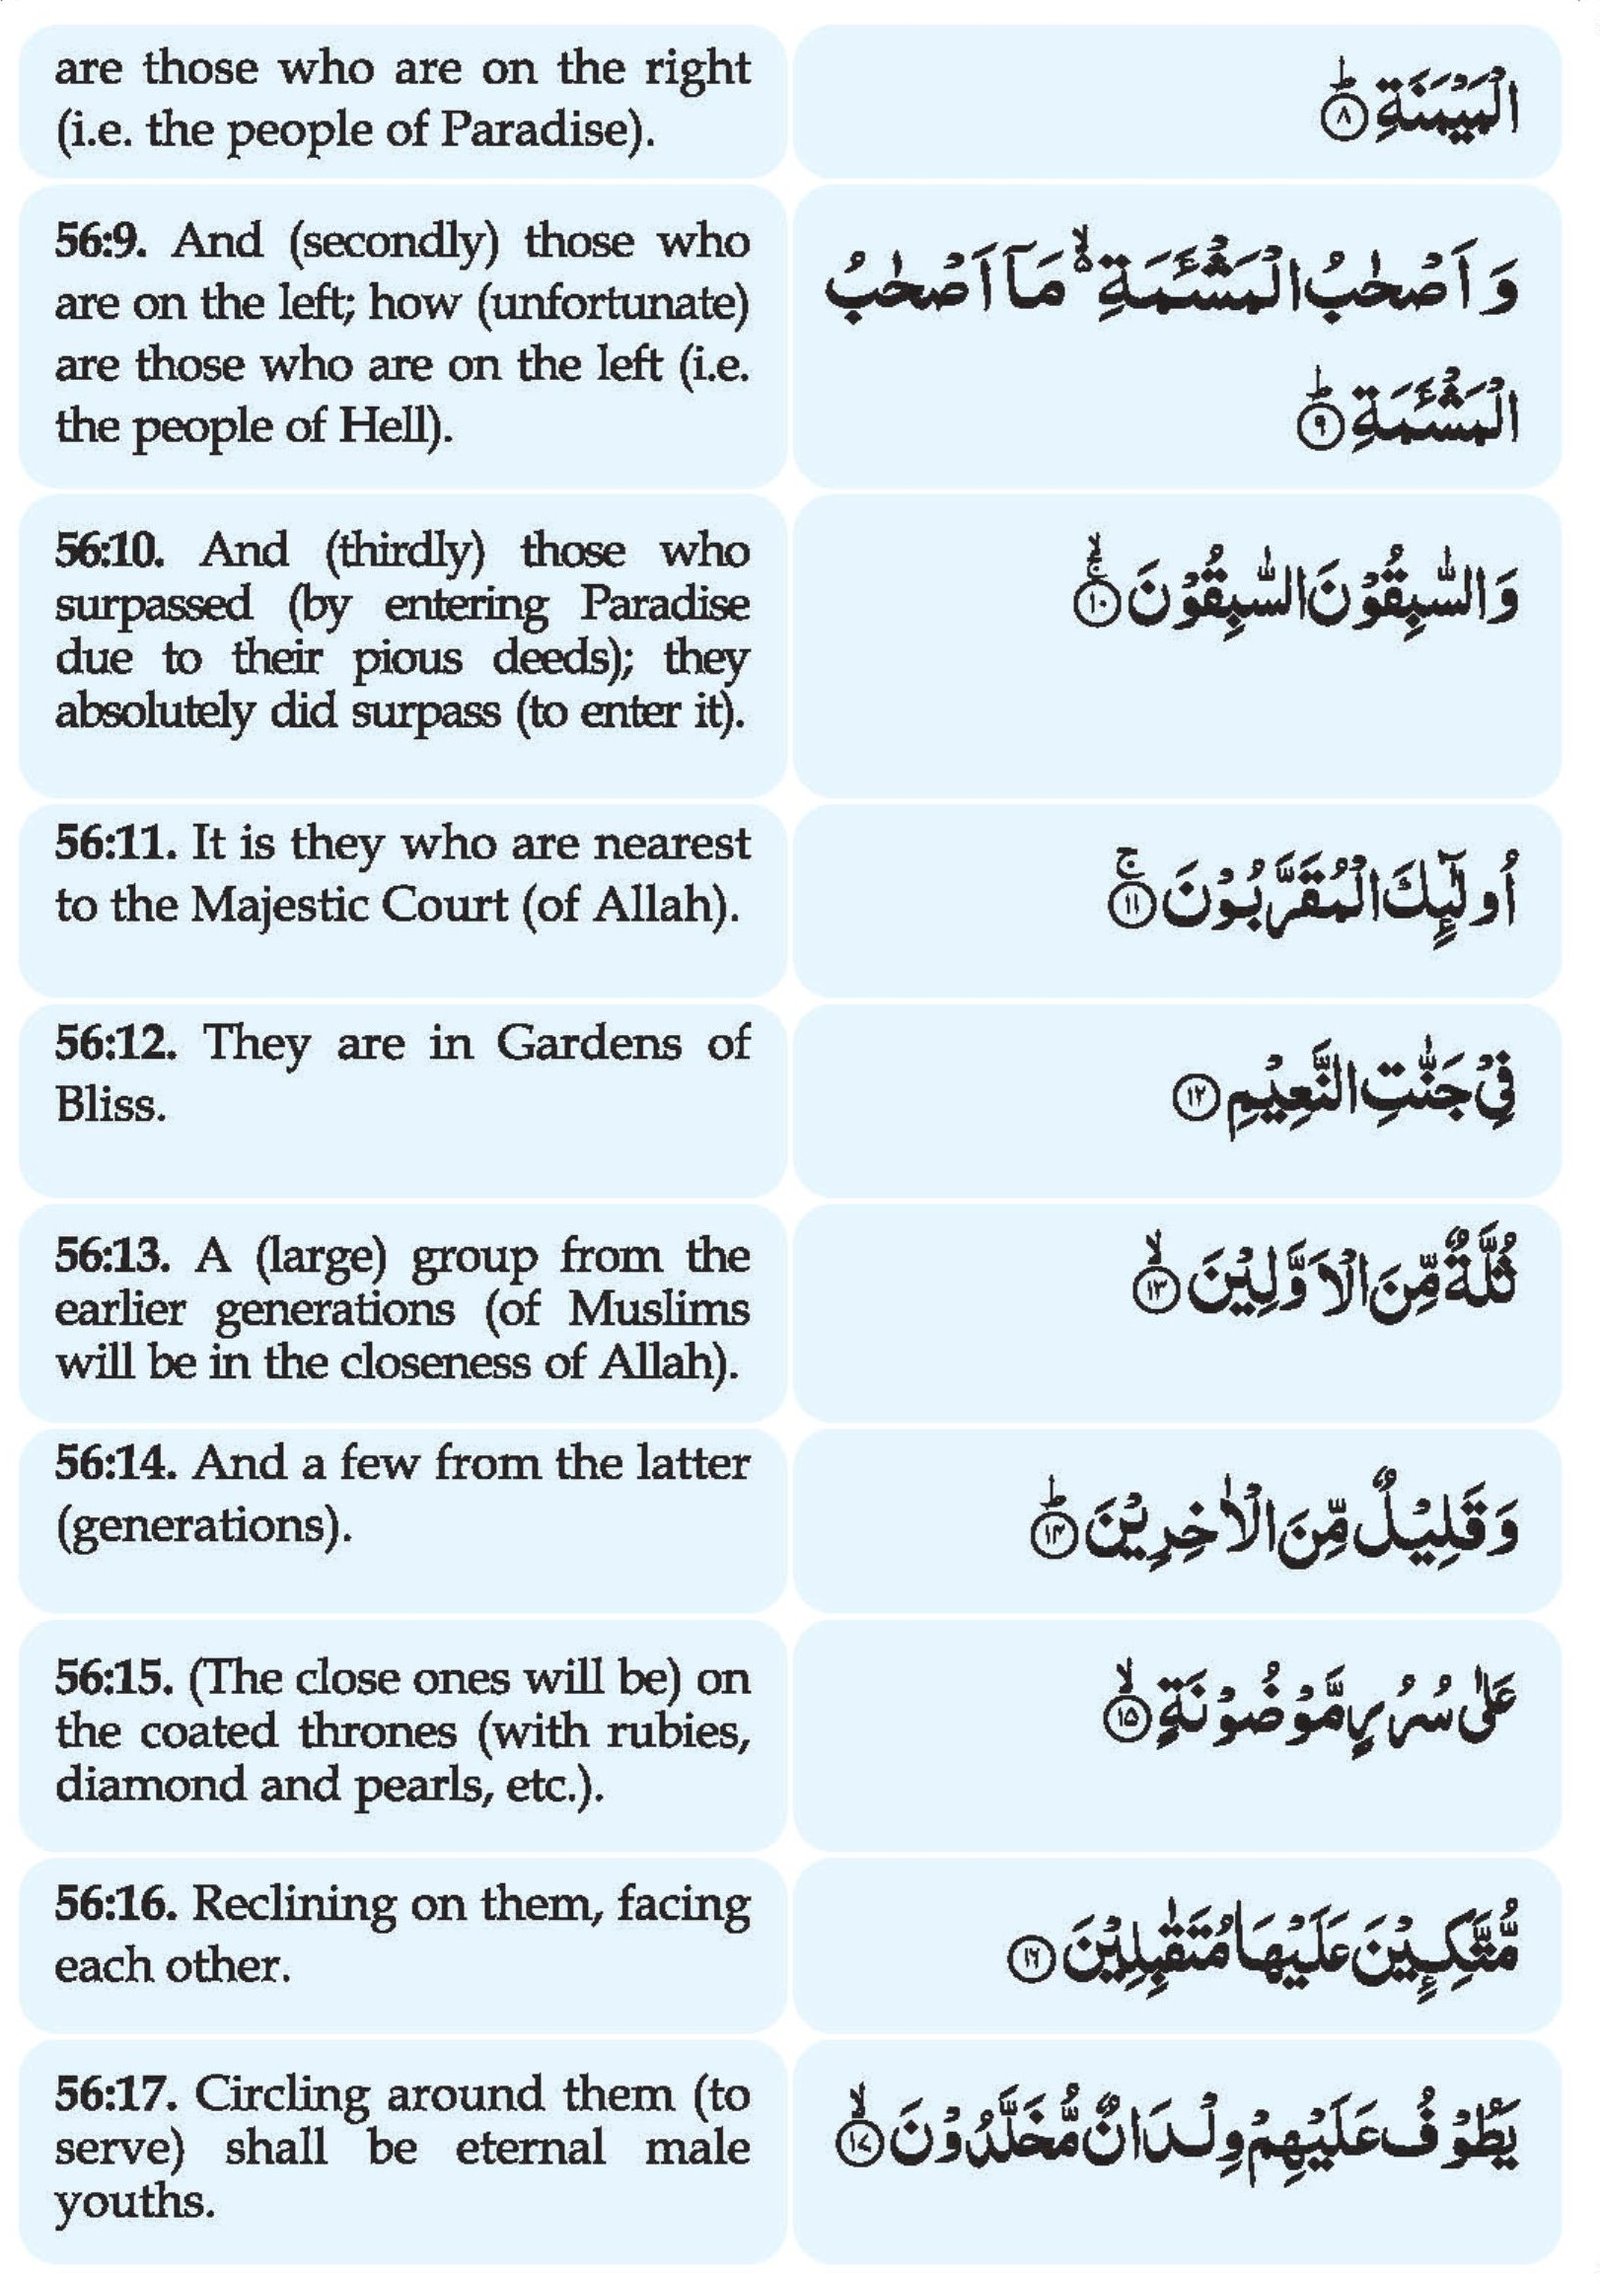 are those who are on the right
(i.e. the people of Paradise).
الْمَيْمَنَةِؕ‏﴿۸﴾
56:9. And (secondly) those who
are on the left; how (unfortunate)
are those who are on the left (i.e.
the people of Hell).
وَ اَصْحٰبُ الْمَشْـَٔمَةِ ۙ۬ مَاۤ اَصْحٰبُ
الْمَشْـَٔمَةِؕ‏﴿۹﴾
56:10. And (thirdly) those who
surpassed (by entering Paradise
due to their pious deeds); they
absolutely did surpass (to enter it).
وَ السّٰبِقُوْنَ السّٰبِقُوْنَ ۚۙ‏﴿۱۰﴾
56:11. It is they who are nearest
to the Majestic Court (of Allah).
اُولٰٓىِٕكَ الْمُقَرَّبُوْنَ ۚ‏﴿۱۱﴾
56:12. They are in Gardens of
Bliss.
فِیْ جَنّٰتِ النَّعِیْمِ‏﴿۱۲﴾
56:13. A (large) group from the
earlier generations (of Muslims
will be in the closeness of Allah).
ثُلَّةٌ مِّنَ الْاَوَّلِیْنَ ۙ‏﴿۱۳﴾
56:14. And a few from the latter
(generations).
وَ قَلِیْلٌ مِّنَ الْاٰخِرِیْنَؕ‏﴿۱۴﴾
56:15. (The close ones will be) on
the coated thrones (with rubies,
diamond and pearls, etc.).
عَلٰی سُرُرٍ مَّوْضُوْنَةٍ ۙ‏﴿۱۵﴾
56:16. Reclining on them, facing
each other.
مُّتَّكِـِٕیْنَ عَلَیْهَا مُتَقٰبِلِیْنَ‏﴿۱۶﴾
56:17. Circling around them (to
serve) shall be eternal male
youths.
یَطُوْفُ عَلَیْهِمْ وِلْدَانٌ مُّخَلَّدُوْنَ ۙ‏﴿۱۷﴾